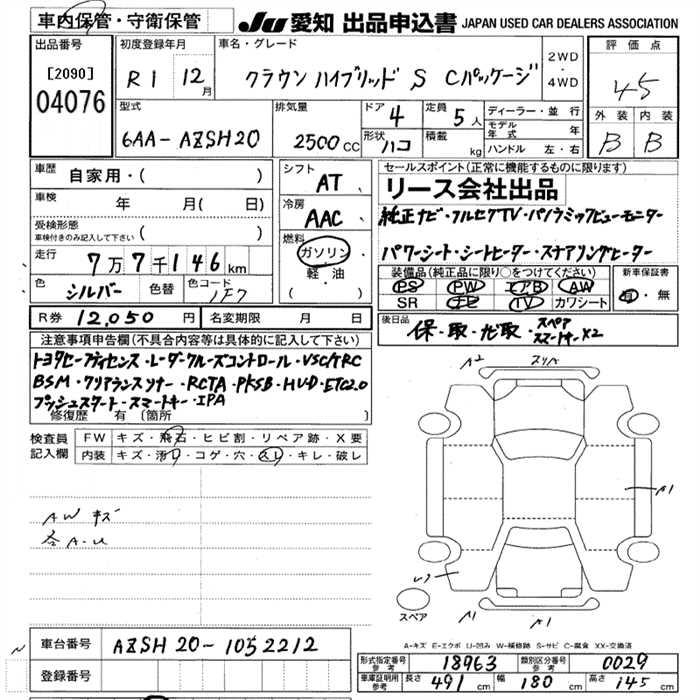 車内保管・守衛保管
JU 愛知 出品申込書 JAPAN USED CAR DEALERS ASSOCIATION
出品番号
[2090]
04076
初度登録年月
R1 12月
車名・グレード
クラウン ハイブリッド S Cパッケージ
2WD
・
4WD
評価点
4.5
型式
6AA-AZSH20
排気量
2500cc
ドア 4
形状 ハコ
定員 5人
積載 kg
ディーラー・並行
モデル年式 年
ハンドル 左・右
外装 内装
B B
車歴 自家用・( )
車検 年 月( 日)
受検形態
車検付きのみ記入して下さい ( )
走行 7万7千146km
色 シルバー 色替 色コード 1F7
シフト AT
冷房 AAC
燃料 ガソリン
軽・油
( )
セールスポイント(正常に機能するものに限ります)
リース会社出品
純正ナビ・フルセグTV・パノラミックビューモニター
パワーシート・シートヒーター・ステアリングヒーター
装備品(純正品に限り○をつけてください)
PS PW エアB AW
SR ナビ TV カワシート
新車保証書
有・無
R券 12,050円 名変期限 月 日
後日品 保・取・ナビ取・スペアスマートキーx2
注意事項申告欄(不具合内容等は具体的に記入して下さい)
トヨタセーフティセンス・レーダークルーズコントロール・VSC/TRC
BSM・クリアランスソナー・RCTA・PKSB・HUD・ETC2.0
プッシュスタート・スマートキー・IPA
修復歴 有 〔箇所 〕
検査員記入欄
FW キズ・飛石・ヒビ割・リペア跡・X要
内装 キズ・汚れ・コゲ・穴・スレ・キレ・破レ
AWキズ
各A-U
A2 スリA
A1
A1
A1
スペア
A-キズ E-エクボ U-凹み W-補修跡 S-サビ C-腐食 XX-交換済
車台番号 AZSH20-1052212
登録番号
形式指定番号参考 18963 類別区分番号参考 0029
車庫証明用参考 長さ 491cm 幅 180cm 高さ 145cm